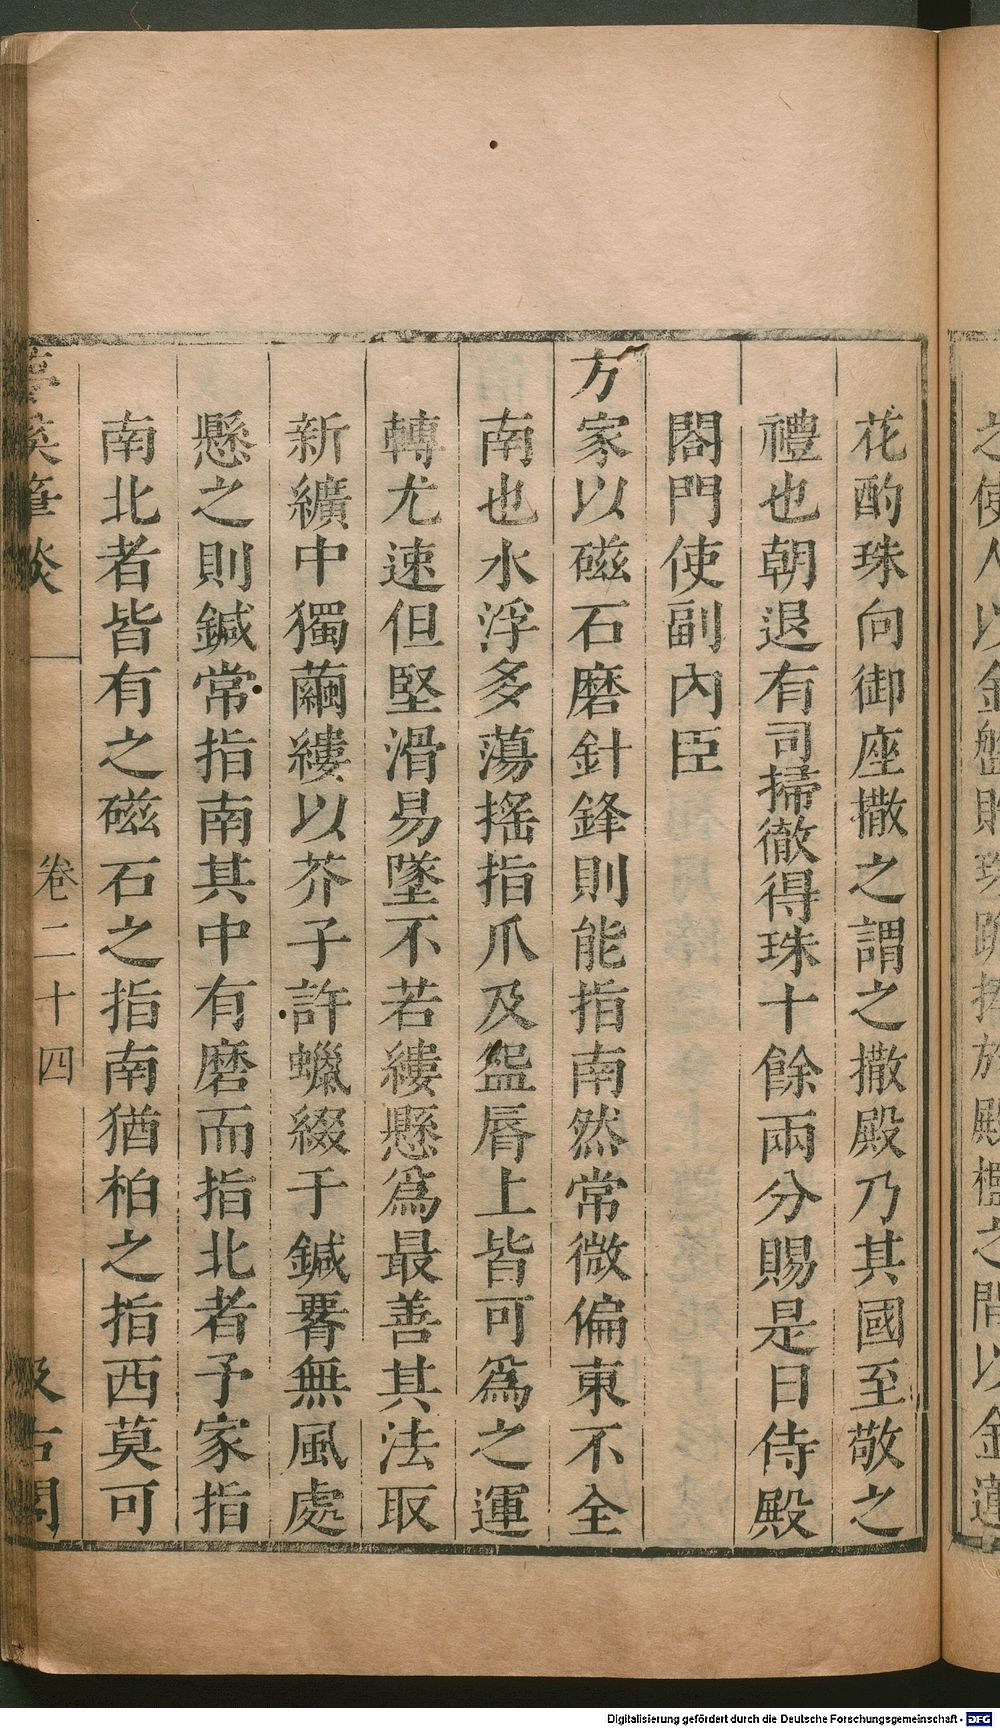 花酌珠向御座撒之謂之撒殿乃其國至敬之
禮也朝退有司掃徹得珠十餘兩分賜是日侍殿
閤門使副內臣
方家以磁石磨針鋒則能指南然常微偏東不全
南也水浮多蕩搖指爪及盌脣上皆可爲之運
轉尤速但堅滑易墜不若縷懸爲最善其法取
新纊中獨繭縷以芥子許蠟綴于鍼腰無風處
懸之則鍼常指南其中有磨而指北者予家指
南北者皆有之磁石之指南猶柏之指西莫可
夢溪筆談
卷二十四
汲古閣
之使人以金盤貯珠跪捧於殿檻之間以金蓮
Digitalisierung gefördert durch die Deutsche Forschungsgemeinschaft - DFG